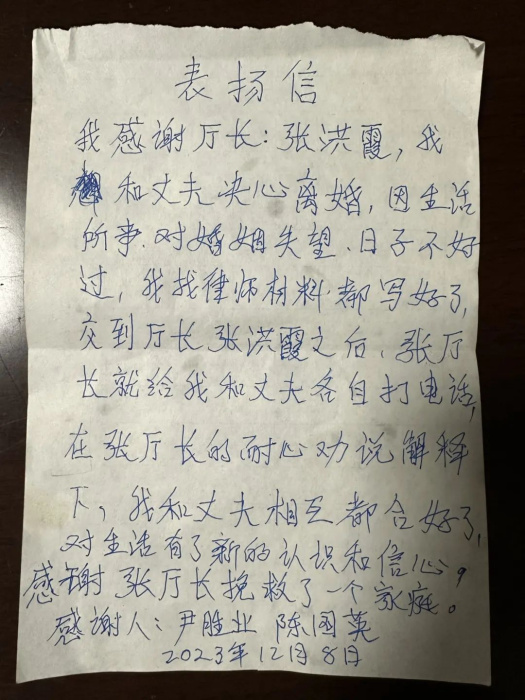 表扬信
我感谢厅长：张洪霞，我
和丈夫决心离婚，因生活
所事、对婚姻失望、日子不好
过，我找律师材料都写好了，
交到厅长张洪霞之后、张厅
长就给我和丈夫各自打电话，
在张厅长的耐心劝说解释
下，我和丈夫相互都合好了，
对生活有了新的认识和信心，
感谢张厅长挽救了一个家庭。
感谢人：尹胜业 陈国英
2023年12月8日